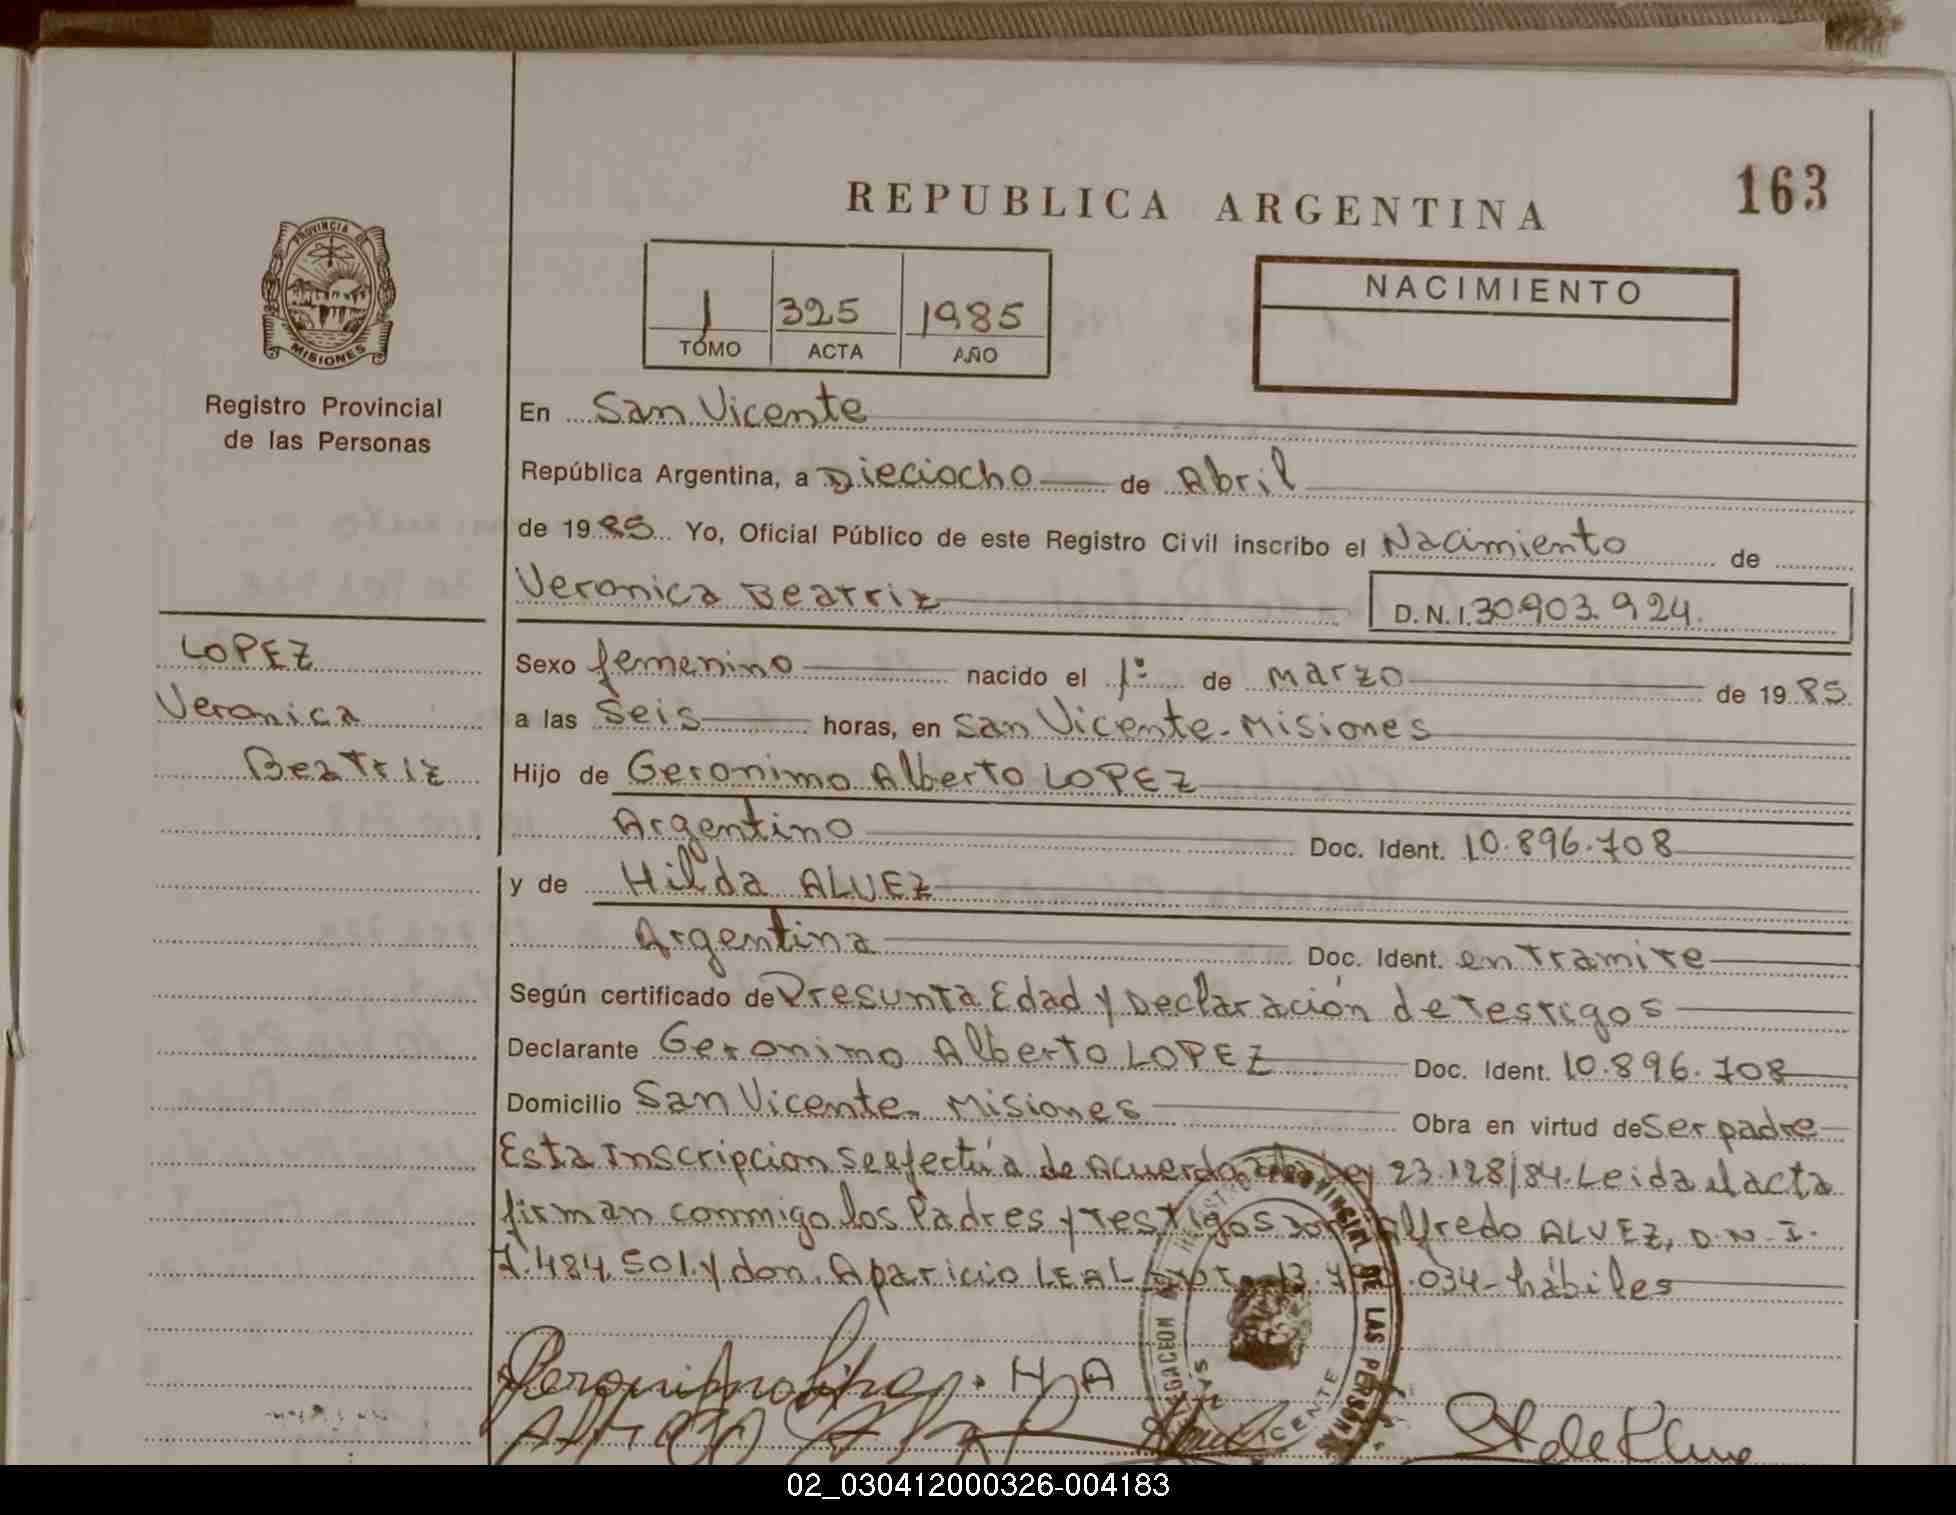 163
REPUBLICA ARGENTINA
PROVINCIA DE
MISIONES
Registro Provincial
de las Personas
1 325 1985
TOMO ACTA AÑO
NACIMIENTO
En San Vicente
República Argentina, a Dieciocho de Abril
de 1985 Yo, Oficial Público de este Registro Civil inscribo el Nacimiento de
Veronica Beatriz D.N.I. 30.903.924.
LOPEZ
Veronica
Beatriz
Sexo femenino nacido el 1º de Marzo de 1985
a las Seis horas, en San Vicente - Misiones
Hijo de Geronimo Alberto LOPEZ
Argentino Doc. Ident. 10.896.708
y de Hilda ALVEZ
Argentina Doc. Ident. en Tramite
Según certificado de Presunta Edad y Declaración de Testigos
Declarante Geronimo Alberto LOPEZ Doc. Ident. 10.896.708
Domicilio San Vicente - Misiones Obra en virtud de Ser padre
Esta Inscripcion se efectúa de Acuerdo a la Ley 23.128/84. Leida el acta
firman conmigo los Padres y Testigos don Alfredo ALVEZ, D.N.I.
7.484.501. y don. Aparicio LEAL 13. .034 - hábiles
REGISTRO PROVINCIAL DE LAS PERSONAS
VICENTE
H A
02_030412000326-004183